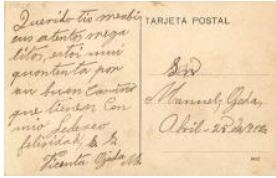 Querido tio recibi
sus atentos rega
litos, estoi mui
quontenta por
su buen camino
que tienen con
mio le deseo
felicidad,
Vicenta Ojeda
TARJETA POSTAL
Sr. D.
Manuel, Ojeda,
Abril - 25 de